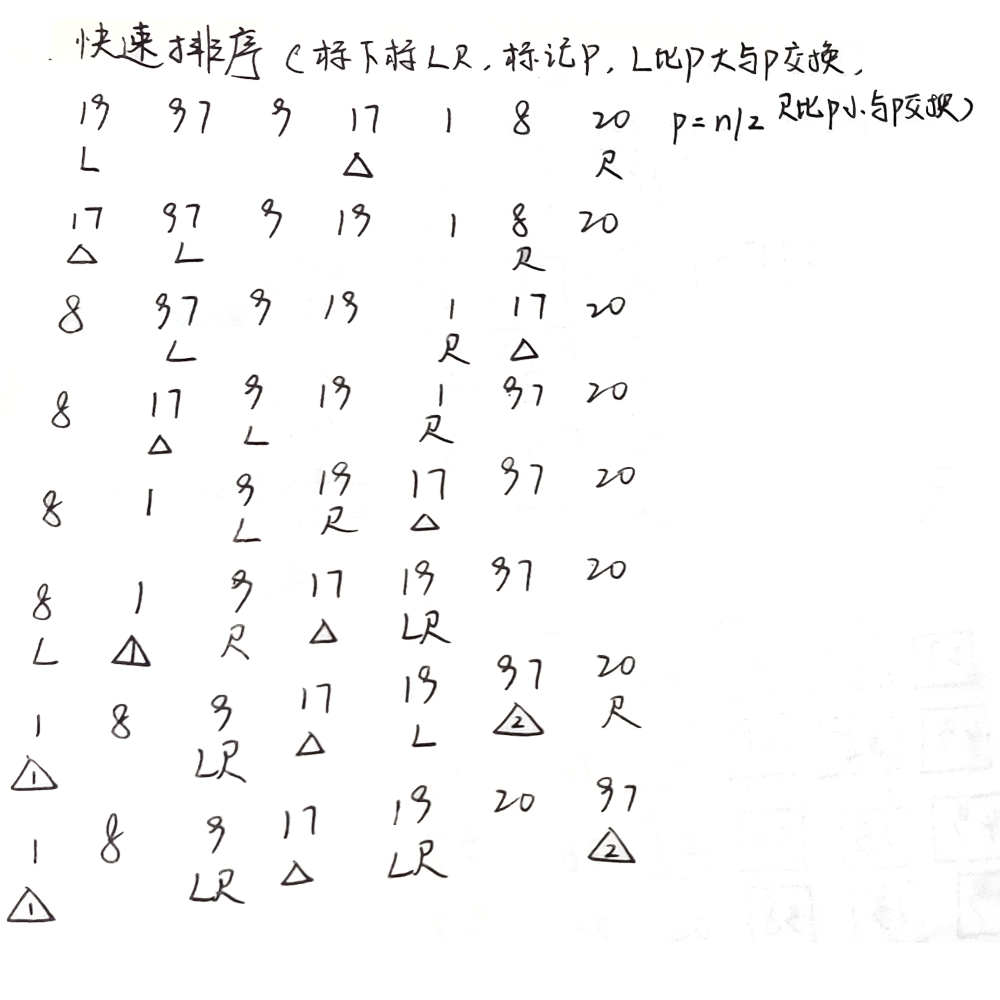 快速排序 (标下标LR, 标记P, L比P大与P交换,
R比P小与P交换)
19 97 9 17 1 8 20 P=n/2
L △ R
17 97 9 19 1 8 20
△ L R
8 97 9 19 1 17 20
L R △
8 17 9 19 1 97 20
△ L R
8 1 9 19 17 97 20
L R △
8 1 9 17 19 97 20
L 1 R △ LR
1 8 9 17 19 97 20
1 LR △ L 2 R
1 8 9 17 19 20 97
1 LR △ LR 2